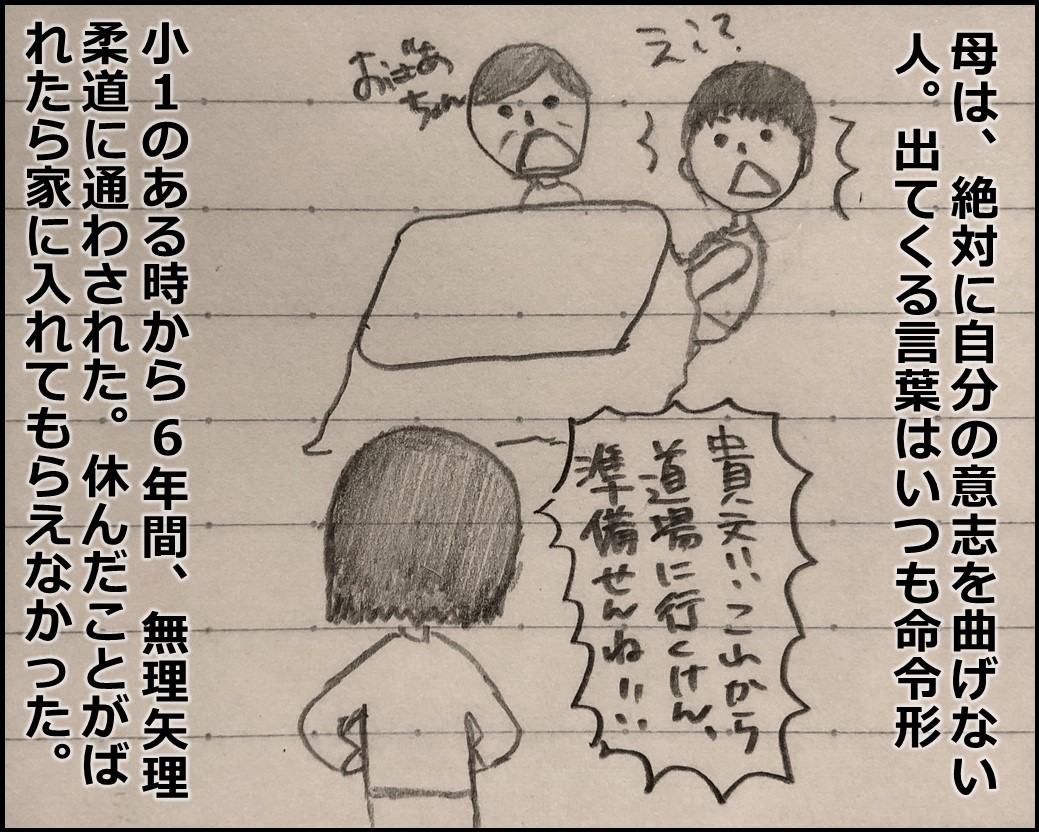 母は、絶対に自分の意志を曲げない
人。出てくる言葉はいつも命令形
えっ?
おばあ
ちゃん
貴文!!これから
道場に行くけん、
準備せんね!!
小1のある時から6年間、無理矢理
柔道に通わされた。休んだことがば
れたら家に入れてもらえなかった。